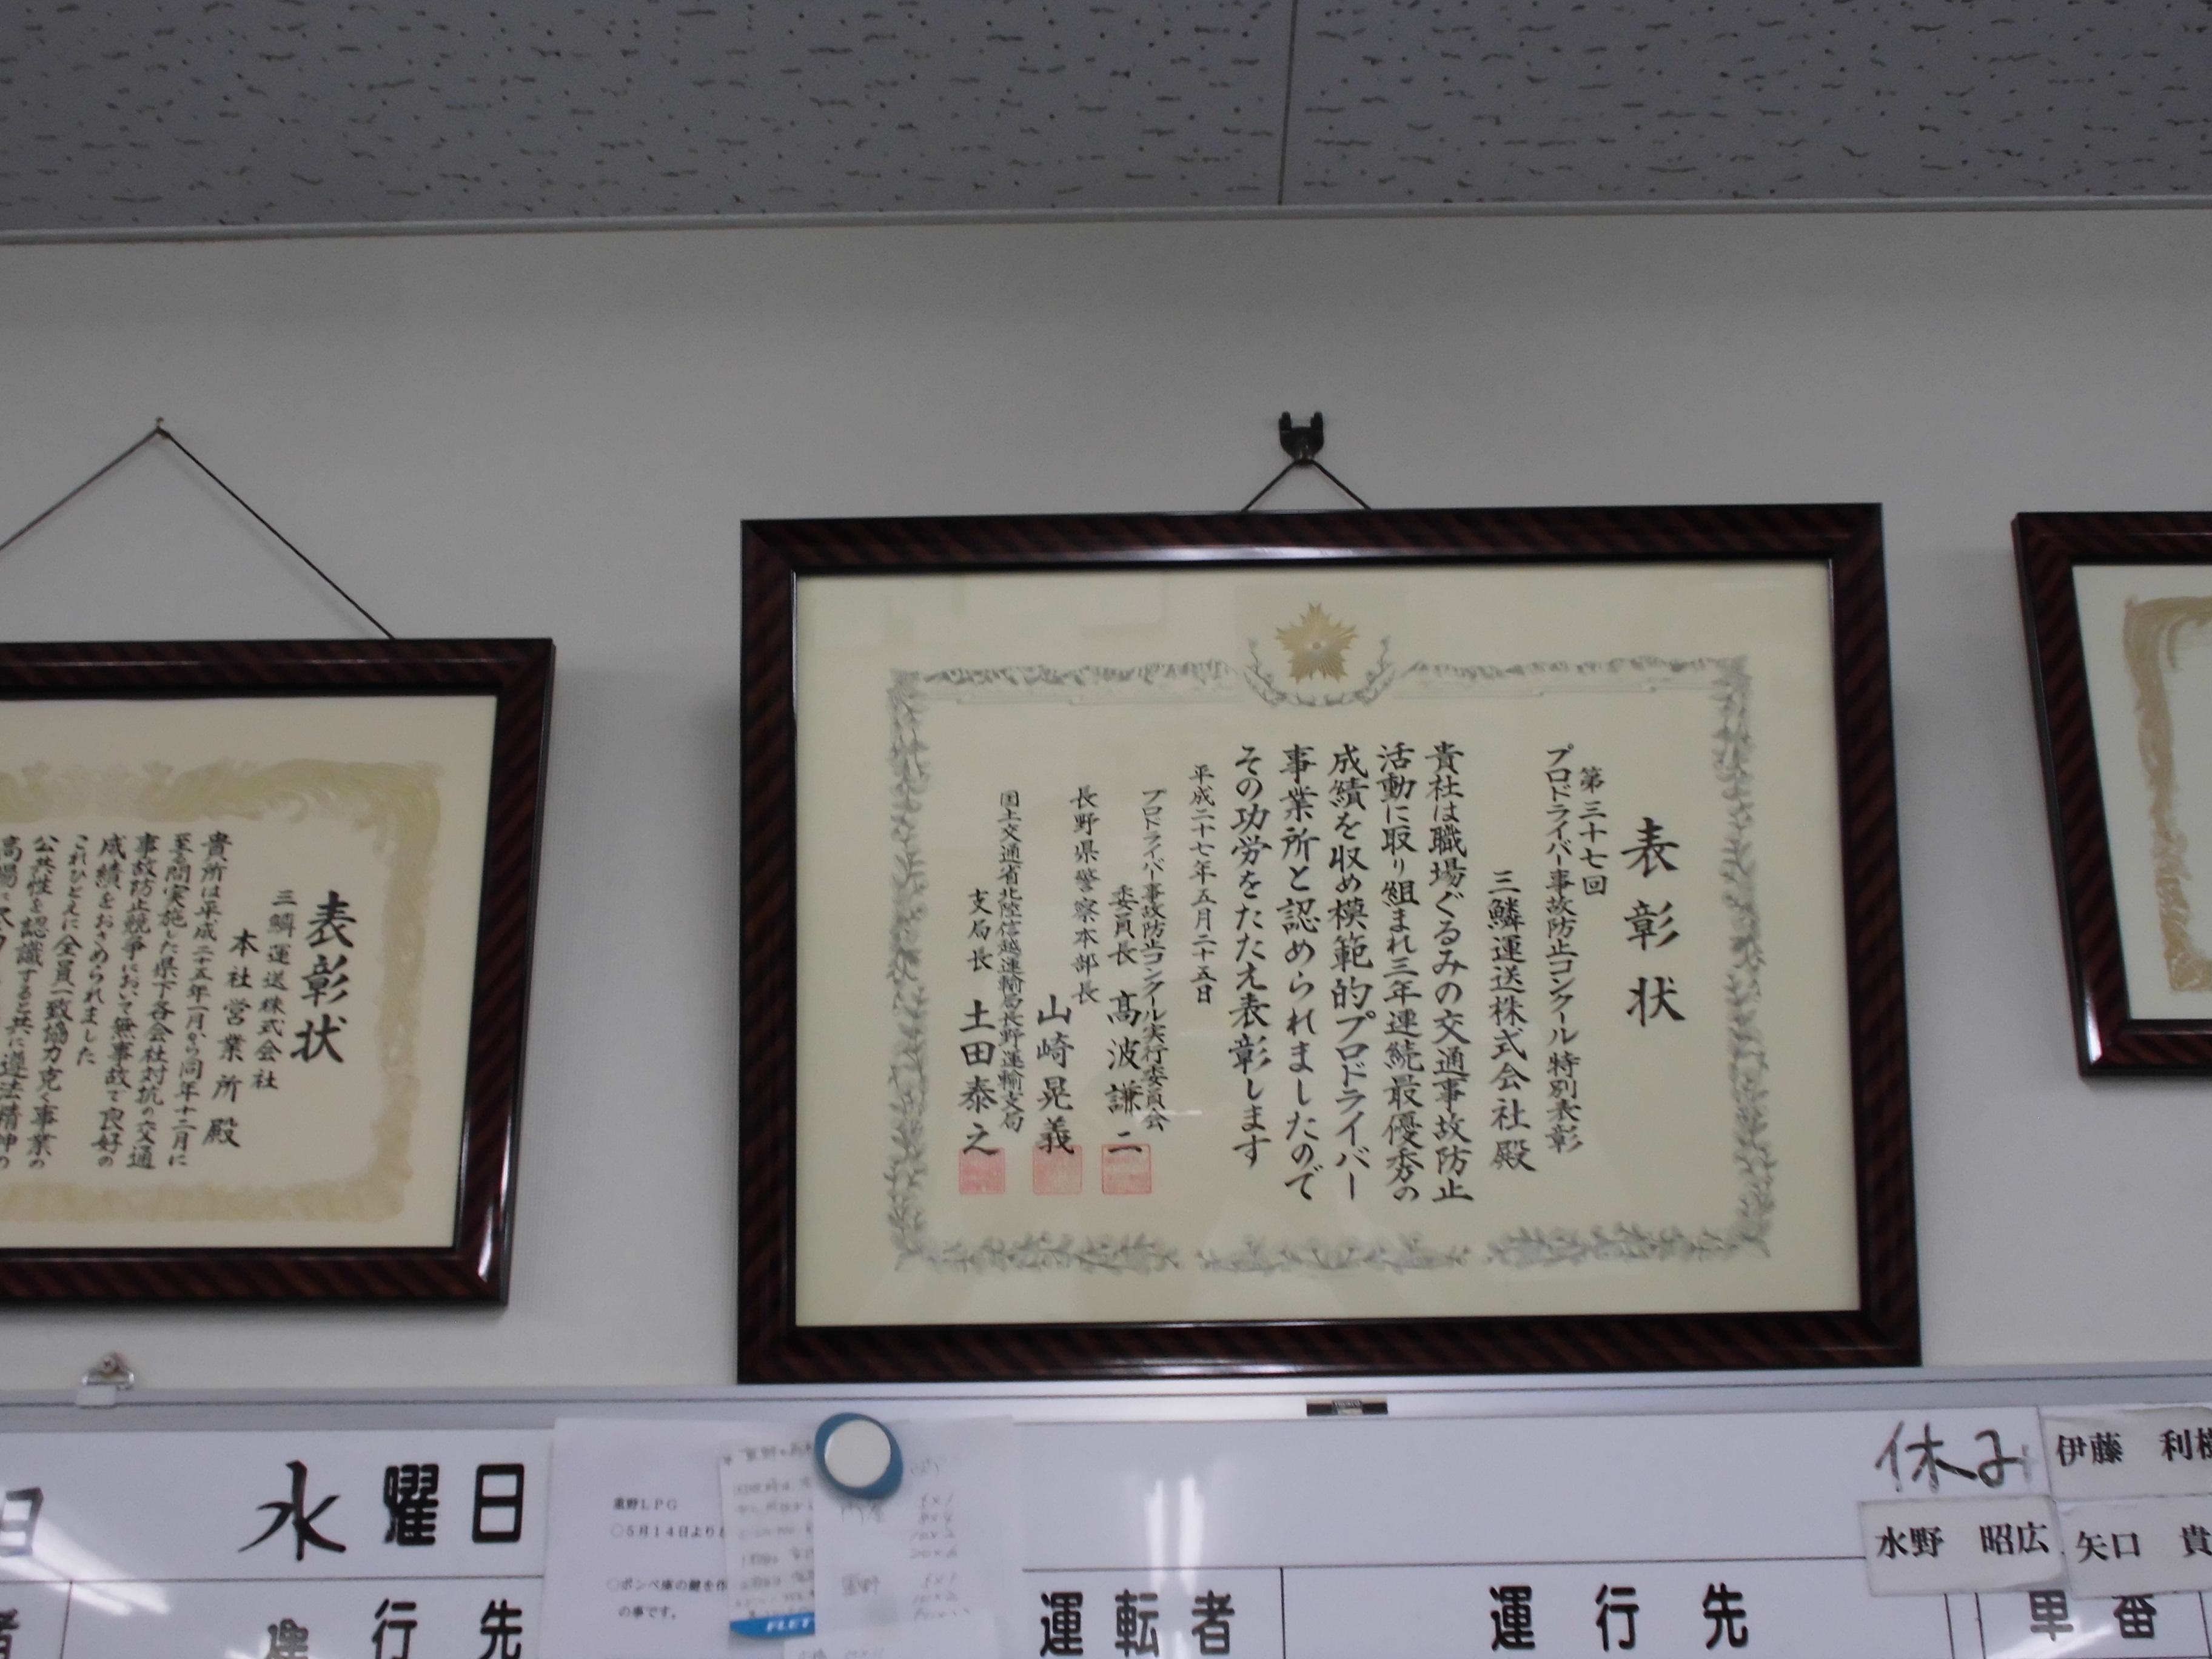 表彰状
第三十七回
プロドライバー事故防止コンクール特別表彰
三鱗運送株式会社殿
貴社は職場ぐるみの交通事故防止
活動に取り組まれ三年連続最優秀の
成績を収め模範的プロドライバー
事業所と認められましたので
その功労をたたえ表彰します
平成二十七年五月二十五日
プロドライバー事故防止コンクール実行委員会
委員長 髙波謙二
長野県警察本部長
山崎晃義
国土交通省北陸信越運輸局長野運輸支局
支局長 土田泰之
表彰状
三鱗運送株式会社
本社営業所殿
貴所は平成二十五年一月から同年十二月に
至る間実施した県下各会社対抗の交通
事故防止競争において無事故で良好の
成績をおさめられました
これひとえに全員一致協力克く事業の
公共性を認識すると共に遵法精神の
水曜日
行先
重野LPG
○5月14日より
○ボンベ庫の鍵を作
の事です。
FLET
運転者
運行先
休み
伊藤 利樹
水野 昭広
矢口 貴
車番